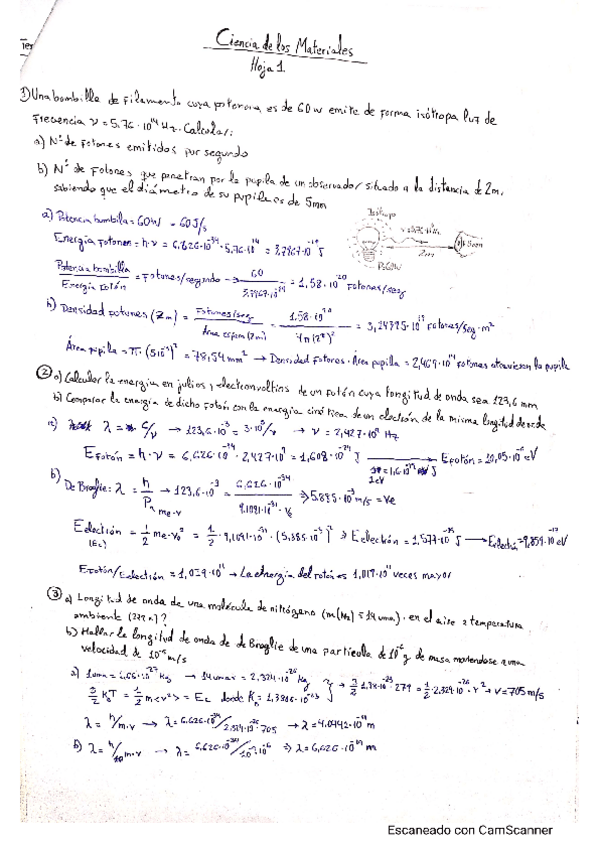 Ciencia de los Materiales
Hoja 1
1) Una bombilla de filamento cuya potencia es de 60w emite de forma isótropa luz de
frecuencia ν = 5,76·10¹⁴ Hz. Calcular:
a) Nº de fotones emitidos por segundo
b) Nº de fotones que penetran por la pupila de un observador situado a la distancia de 2m,
sabiendo que el diámetro de su pupila es de 5mm
a) Potencia bombilla = 60W = 60 J/s
Energía fotones = h·ν = 6,626·10⁻³⁴·5,76·10¹⁴ = 3,8167·10⁻¹⁹ J
2m
5mm
P=60W
Potencia bombilla / Energía fotón = Fotones/segundo → 60 / = 1,58·10²⁰ Fotones/seg
b) Densidad fotones (2m) = Fotones/seg / Área esfera (2m) = 1,58·10²⁰ / 4π(2²) = Fotones/seg·m²
Área pupila = π· = 78,54 mm² → Densidad fotones · Área pupila = 2,469·10¹⁴ fotones atraviesan la pupila
2 a) Calcular la energía en julios y electronvoltios de un fotón cuya longitud de onda sea 123,6 mm
b) Comparar la energía de dicho fotón con la energía cinética de un electrón de la misma longitud de onda
λ = c/ν → 123,6·10⁻³ = 3·10⁸/ν → ν = 2,427·10⁹ Hz
E fotón = h·ν = 6,626·10⁻³⁴·2,427·10⁹ = 1,608·10⁻²⁴ J → E fotón = 10,05·10⁻⁶ eV
b) De Broglie: λ = h / me·v → 123,6·10⁻³ = 6,626·10⁻³⁴ / 9,1091·10⁻³¹·Ve ⇒ 5,885·10⁻³ m/s = Ve
E electrón (Ec) = 1/2 me·ve² = 1/2·9,1091·10⁻³¹·(5,885·10⁻³)² ⇒ E electrón = 1,577·10⁻³⁵ J → E electrón = 9,859·10⁻¹⁷ eV
E fotón/E electrón = 1,019·10¹¹ → La energía del fotón es 1,019·10¹¹ veces mayor
3 a) Longitud de onda de una molécula de nitrógeno (m(N₂) = 14 uma). en el aire a temperatura
ambiente ?
b) Hallar la longitud de onda de de Broglie de una partícula de 10⁻⁶ g de masa moviéndose a una
velocidad de 10⁻⁶ m/s
a) 1 uma = 1,66·10⁻²⁷ kg → 14 umas = 2,324·10⁻²⁶ kg
3/2 KBT = 1/2 m<v²> = Ec donde } → v = 705 m/s
λ = h/m·v → λ = 6,626·10⁻³⁴ / 2,324·10⁻²⁶·705 → λ = 4,0442·10⁻¹¹ m
b) λ = h/m·v → λ = 6,626·10⁻³⁴ / ⇒ λ = 6,626·10⁻¹⁹ m
Escaneado con CamScanner